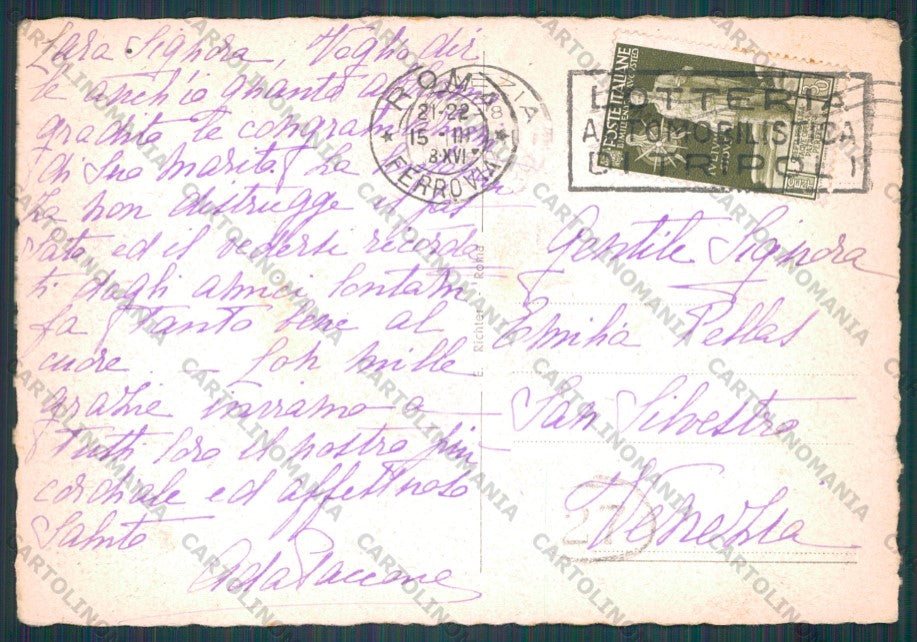 Cara Signora, Voglio dir
le anch'io quanto
gradite le congratu
di Suo marito. La
za non distrugge il pas
sato ed il vedersi ricorda
ti dagli amici lontani
fa tanto bene al
cuore. Con mille
grazie inviamo a
tutti loro il nostro più
cordiale ed affettuoso
Saluto
Ada Paccone
E. Richter Roma
ROMA
21-22
15
XVI
FERROVIA
POSTE ITALIANE
LOTTERIA
AUTOMOBILISTICA
DI TRIPOLI
Gentile Signora
Emilia Pellas
San Silvestro
Venezia
27
CARTOLINOMANIA